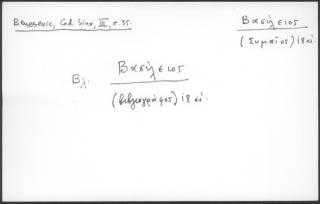 Benešević, Cod. Sina, III, σ. 35.
Βασίλειος
(Συμαῖος) 18 αἰ.
Βλ. Βασίλειος
(βιβλιογράφος) 18 αἰ.